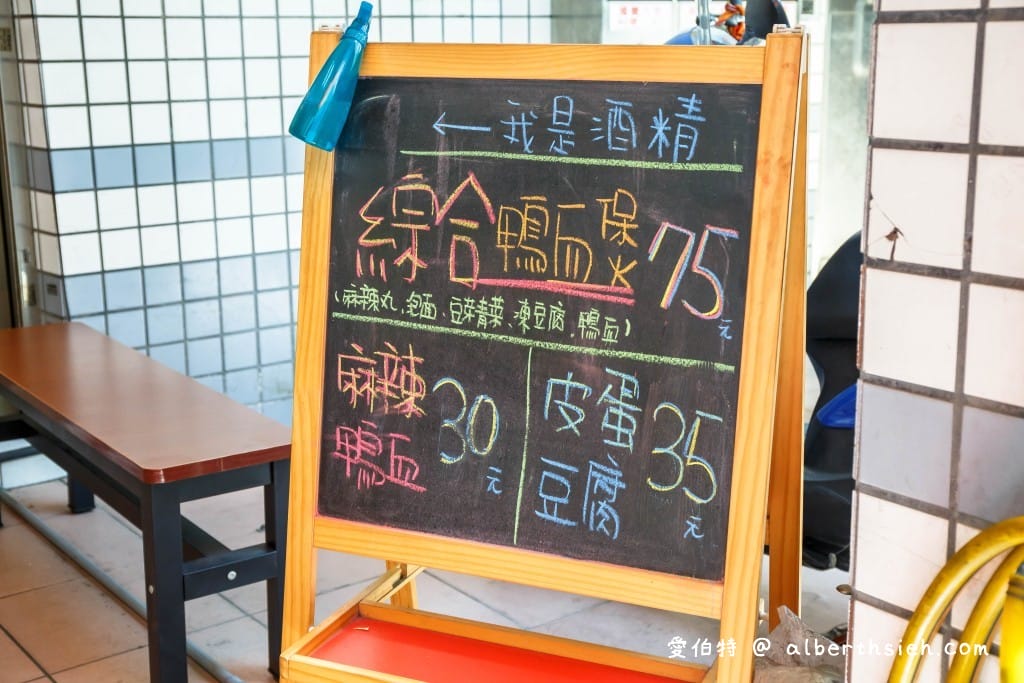 ←我是酒精
綜合鴨血保火 75元
(麻辣丸、老麵、豆芽青菜、凍豆腐、鴨血)
麻辣
鴨血 30元
皮蛋
豆腐 35元
愛伯特 @ alberthsieh.com